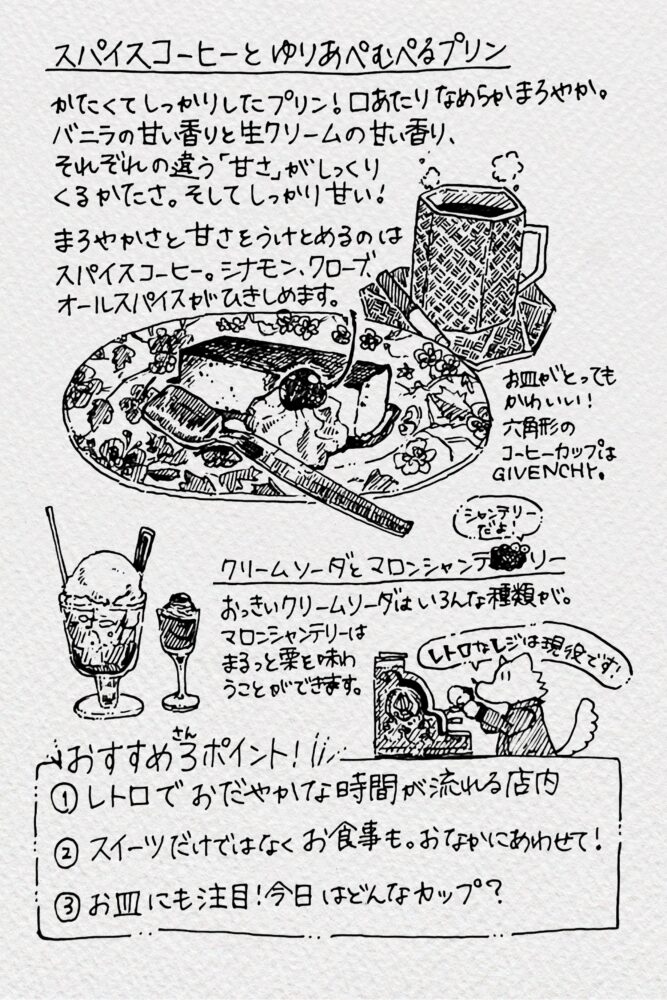 スパイスコーヒーとゆりあぺむぺるプリン
かたくてしっかりしたプリン！口あたりなめらかまろやか。
バニラの甘い香りと生クリームの甘い香り、
それぞれの違う「甘さ」がしっくり
くるかたさ。そしてしっかり甘い！
まろやかさと甘さをうけとめるのは
スパイスコーヒー。シナモン、クローブ、
オールスパイスがひきしめます。
お皿がとっても
かわいい！
六角形の
コーヒーカップは
GIVENCHY。
シャンテリー
だよ！
クリームソーダとマロンシャンテリー
おっきいクリームソーダはいろんな種類が。
マロンシャンテリーは
まるっと栗を味わ
うことができます。
レトロなレジは現役です！
さん
おすすめ3ポイント！
① レトロでおだやかな時間が流れる店内
② スイーツだけではなくお食事も。おなかにあわせて！
③ お皿にも注目！今日はどんなカップ？